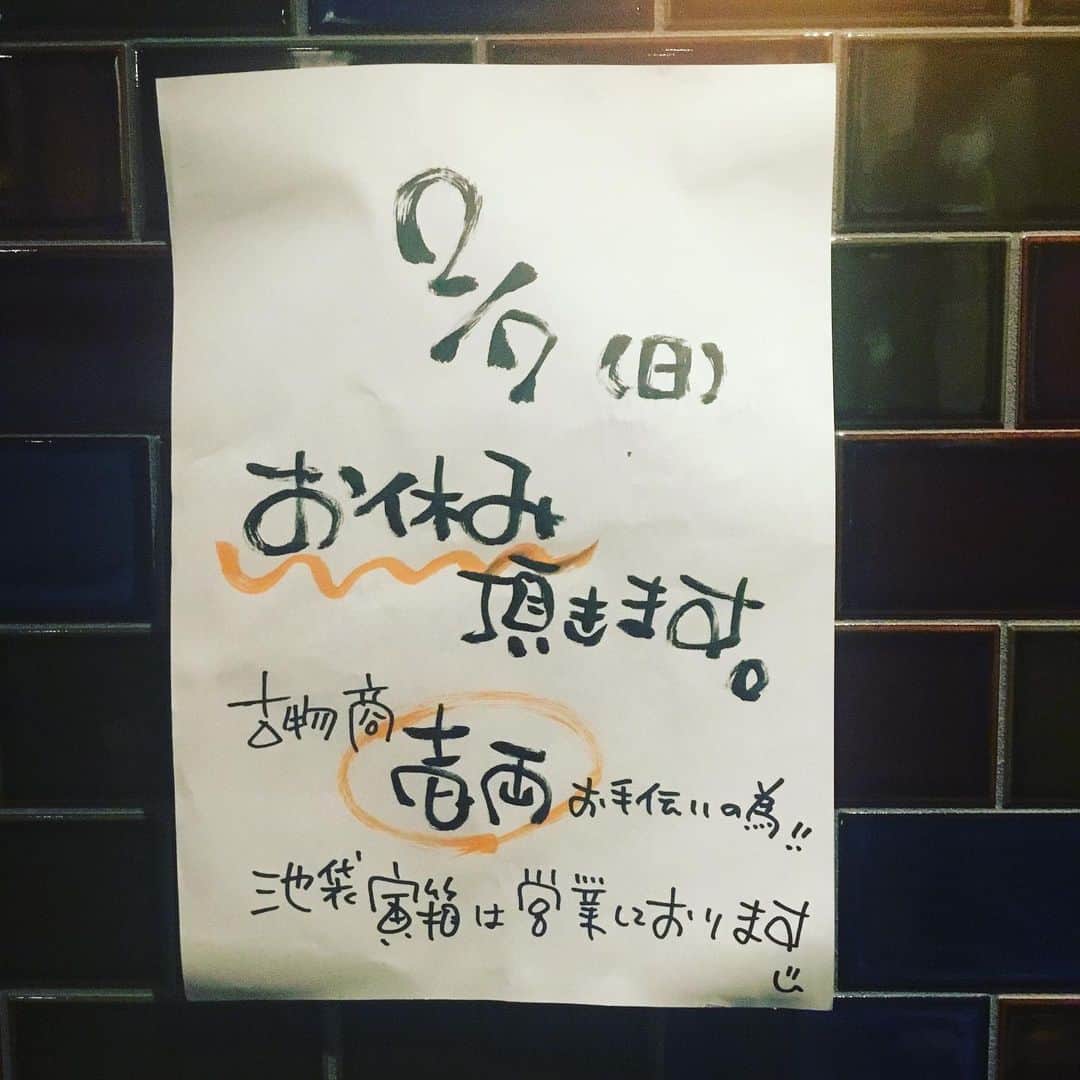 2/7 (日)
お休み
頂きます。
古物商 お手伝いの為!!
池袋寅箱は営業しております